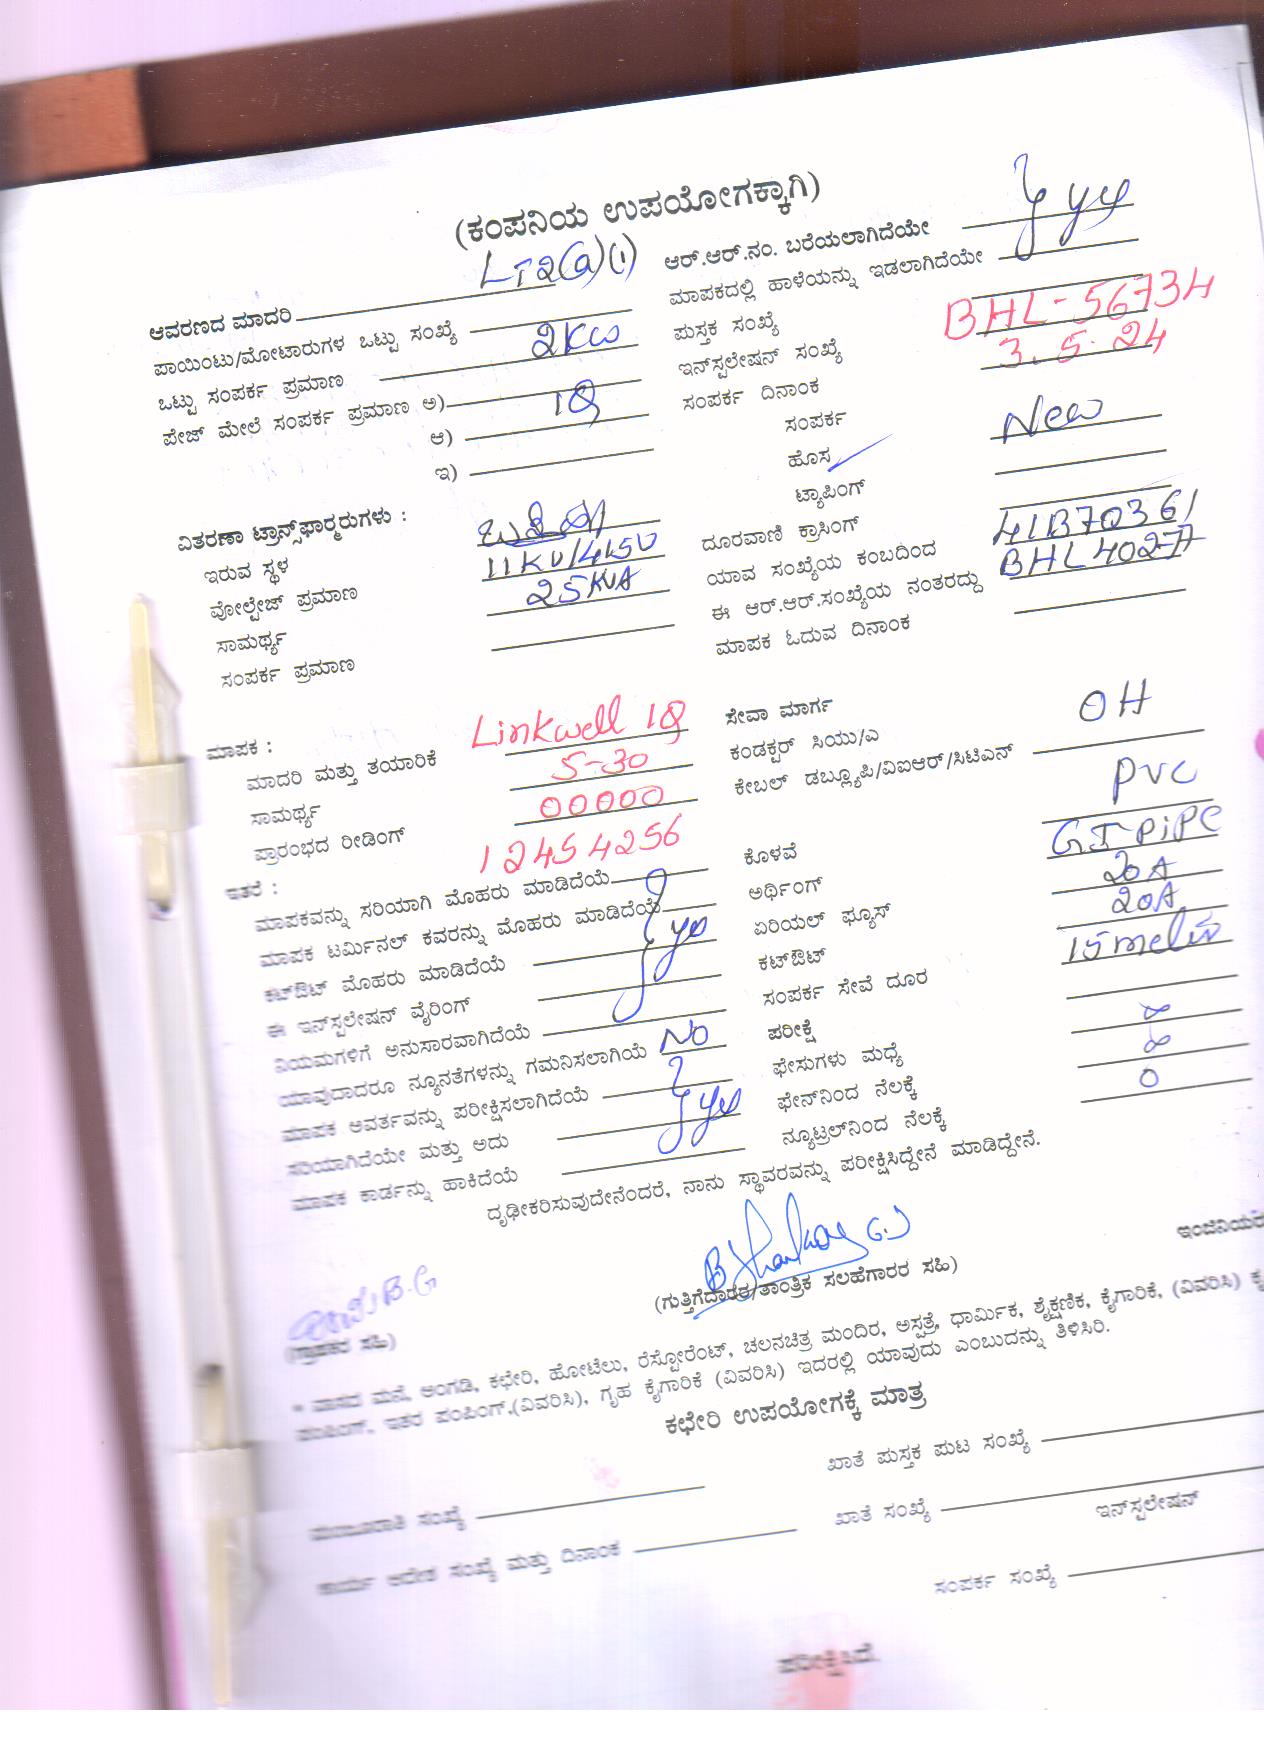 (ಕಂಪನಿಯ ಉಪಯೋಗಕ್ಕಾಗಿ)
ಆವರಣದ ಮಾದರಿ LT2(a)(1)
ಪಾಯಿಂಟು/ಮೋಟಾರುಗಳ ಒಟ್ಟು ಸಂಖ್ಯೆ
ಒಟ್ಟು ಸಂಪರ್ಕ ಪ್ರಮಾಣ 2KW
ಪೇಜ್ ಮೇಲೆ ಸಂಪರ್ಕ ಪ್ರಮಾಣ ಅ)
ಆ) 1Q
ಇ)
ಆರ್.ಆರ್.ನಂ. ಬರೆಯಲಾಗಿದೆಯೇ
ಮಾಪಕದಲ್ಲಿ ಹಾಳೆಯನ್ನು ಇಡಲಾಗಿದೆಯೇ
ಪುಸ್ತಕ ಸಂಖ್ಯೆ
ಇನ್‌ಸ್ಪಲೇಷನ್ ಸಂಖ್ಯೆ BHL-56734
ಸಂಪರ್ಕ ದಿನಾಂಕ 3.5.24
ಸಂಪರ್ಕ
ಹೊಸ New
ಟ್ಯಾಪಿಂಗ್
ವಿತರಣಾ ಟ್ರಾನ್ಸ್‌ಫಾರ್‍ಮರುಗಳು :
ಇರುವ ಸ್ಥಳ
ವೋಲ್ಟೇಜ್ ಪ್ರಮಾಣ 11KV/415V
ಸಾಮರ್ಥ್ಯ 25KVA
ಸಂಪರ್ಕ ಪ್ರಮಾಣ
ದೂರವಾಣಿ ಕ್ರಾಸಿಂಗ್
ಯಾವ ಸಂಖ್ಯೆಯ ಕಂಬದಿಂದ 41B70361
ಈ ಆರ್.ಆರ್.ಸಂಖ್ಯೆಯ ನಂತರದ್ದು BHL40277
ಮಾಪಕ ಓದುವ ದಿನಾಂಕ
ಮಾಪಕ :
ಮಾದರಿ ಮತ್ತು ತಯಾರಿಕೆ Linkwell 1Q
ಸಾಮರ್ಥ್ಯ 5-30
ಪ್ರಾರಂಭದ ರೀಡಿಂಗ್ 00000
12454256
ಸೇವಾ ಮಾರ್ಗ OH
ಕಂಡಕ್ಟರ್ ಸಿಯು/ಎ
ಕೇಬಲ್ ಡಬ್ಲ್ಯೂಪಿ/ವಿಐಆರ್/ಸಿಟಿಎನ್ PVC
ಕೊಳವೆ GI PiPe
ಅರ್ಥಿಂಗ್
ಏರಿಯಲ್ ಫ್ಯೂಸ್ 20A
ಕಟ್‌ಔಟ್ 20A
ಸಂಪರ್ಕ ಸೇವೆ ದೂರ 15
ಇತರೆ :
ಮಾಪಕವನ್ನು ಸರಿಯಾಗಿ ಮೊಹರು ಮಾಡಿದೆಯೆ
ಮಾಪಕ ಟರ್ಮಿನಲ್ ಕವರನ್ನು ಮೊಹರು ಮಾಡಿದೆಯೆ
ಕಟ್‌ಔಟ್ ಮೊಹರು ಮಾಡಿದೆಯೆ yes
ಈ ಇನ್‌ಸ್ಪಲೇಷನ್ ವೈರಿಂಗ್
ನಿಯಮಗಳಿಗೆ ಅನುಸಾರವಾಗಿದೆಯೆ
ಯಾವುದಾದರೂ ನ್ಯೂನತೆಗಳನ್ನು ಗಮನಿಸಲಾಗಿಯೆ No
ಮಾಪಕ ಅವರ್ತವನ್ನು ಪರೀಕ್ಷಿಸಲಾಗಿದೆಯೆ
ಸರಿಯಾಗಿದೆಯೇ ಮತ್ತು ಅದು yes
ಮಾಪಕ ಕಾರ್ಡನ್ನು ಹಾಕಿದೆಯೆ
ಪರೀಕ್ಷೆ
ಫೇಸುಗಳು ಮಧ್ಯೆ ∞
ಫೇನ್‌ನಿಂದ ನೆಲಕ್ಕೆ ∞
ನ್ಯೂಟ್ರಲ್‌ನಿಂದ ನೆಲಕ್ಕೆ 0
ದೃಢೀಕರಿಸುವುದೇನೆಂದರೆ, ನಾನು ಸ್ಥಾವರವನ್ನು ಪರೀಕ್ಷಿಸಿದ್ದೇನೆ ಮಾಡಿದ್ದೇನೆ.
(ಗ್ರಾಹಕರ ಸಹಿ)
(ಗುತ್ತಿಗೆದಾರರ/ತಾಂತ್ರಿಕ ಸಲಹೆಗಾರರ ಸಹಿ)
* ವಾಸದ ಮನೆ, ಅಂಗಡಿ, ಕಛೇರಿ, ಹೋಟೆಲು, ರೆಸ್ಟೋರೆಂಟ್, ಚಲನಚಿತ್ರ ಮಂದಿರ, ಅಸ್ಪತ್ರೆ, ಧಾರ್ಮಿಕ, ಶೈಕ್ಷಣಿಕ, ಕೈಗಾರಿಕೆ, (ವಿವರಿಸಿ)
ಪಂಪಿಂಗ್, ಇತರ ಪಂಪಿಂಗ್,(ವಿವರಿಸಿ), ಗೃಹ ಕೈಗಾರಿಕೆ (ವಿವರಿಸಿ) ಇದರಲ್ಲಿ ಯಾವುದು ಎಂಬುದನ್ನು ತಿಳಿಸಿರಿ.
ಕಛೇರಿ ಉಪಯೋಗಕ್ಕೆ ಮಾತ್ರ
ಮಂಜೂರಾತಿ ಸಂಖ್ಯೆ
ಖಾತೆ ಪುಸ್ತಕ ಪುಟ ಸಂಖ್ಯೆ
ಕಾರ್ಯ ಆದೇಶ ಸಂಖ್ಯೆ ಮತ್ತು ದಿನಾಂಕ
ಖಾತೆ ಸಂಖ್ಯೆ
ಇನ್‌ಸ್ಪಲೇಷನ್
ಸಂಪರ್ಕ ಸಂಖ್ಯೆ
ಪರೀಕ್ಷಿಸಿದೆ.